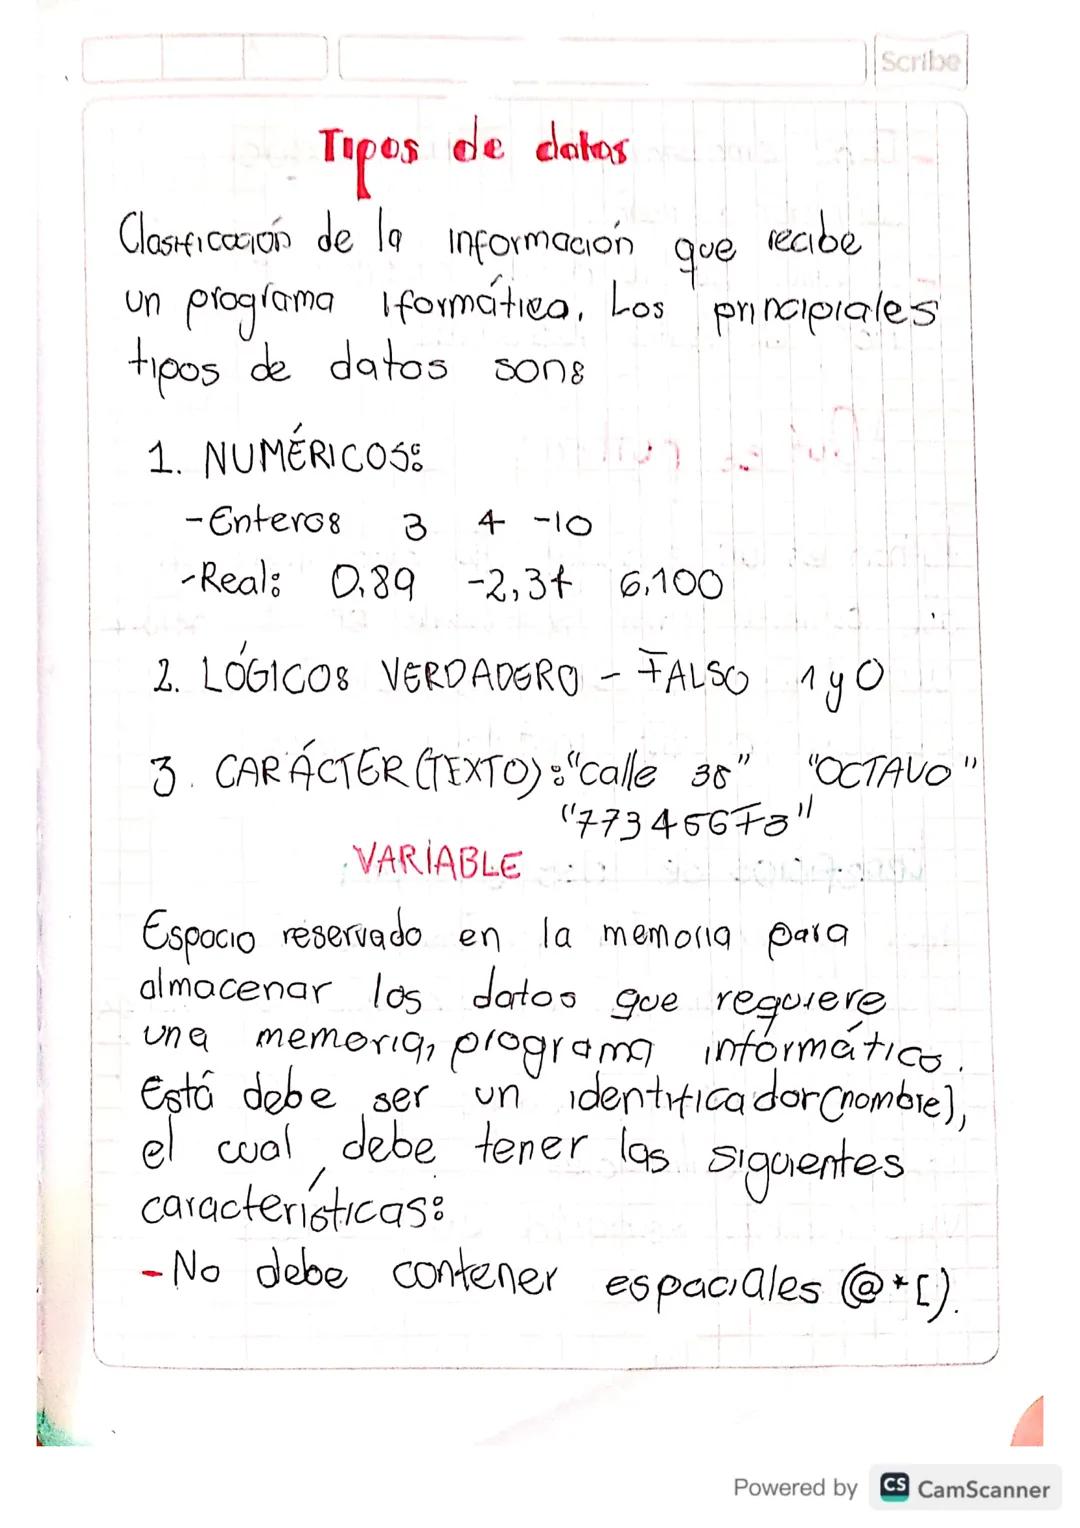 Scribe
Tipos de datos
Clasificación de la información que recibe
un programa iformático. Los principiales
tipos de datos son:
1. NUMÉRICOS:
-Enteros 3 4 -10
-Real: 0,89 -2,37 6,100
2. LÓGICOS VERDADERO - FALSO 1 y 0
3. CARÁCTER (TEXTO): "calle 38" "OCTAVO"
"77345678"
VARIABLE
Espacio reservado en la memoria para
almacenar los datos que requiere
una memoria, programa informático.
Está debe ser un identificador (nombre),
el cual debe tener las siguientes
características:
-No debe contener espaciales @*[).
Powered by CS CamScanner